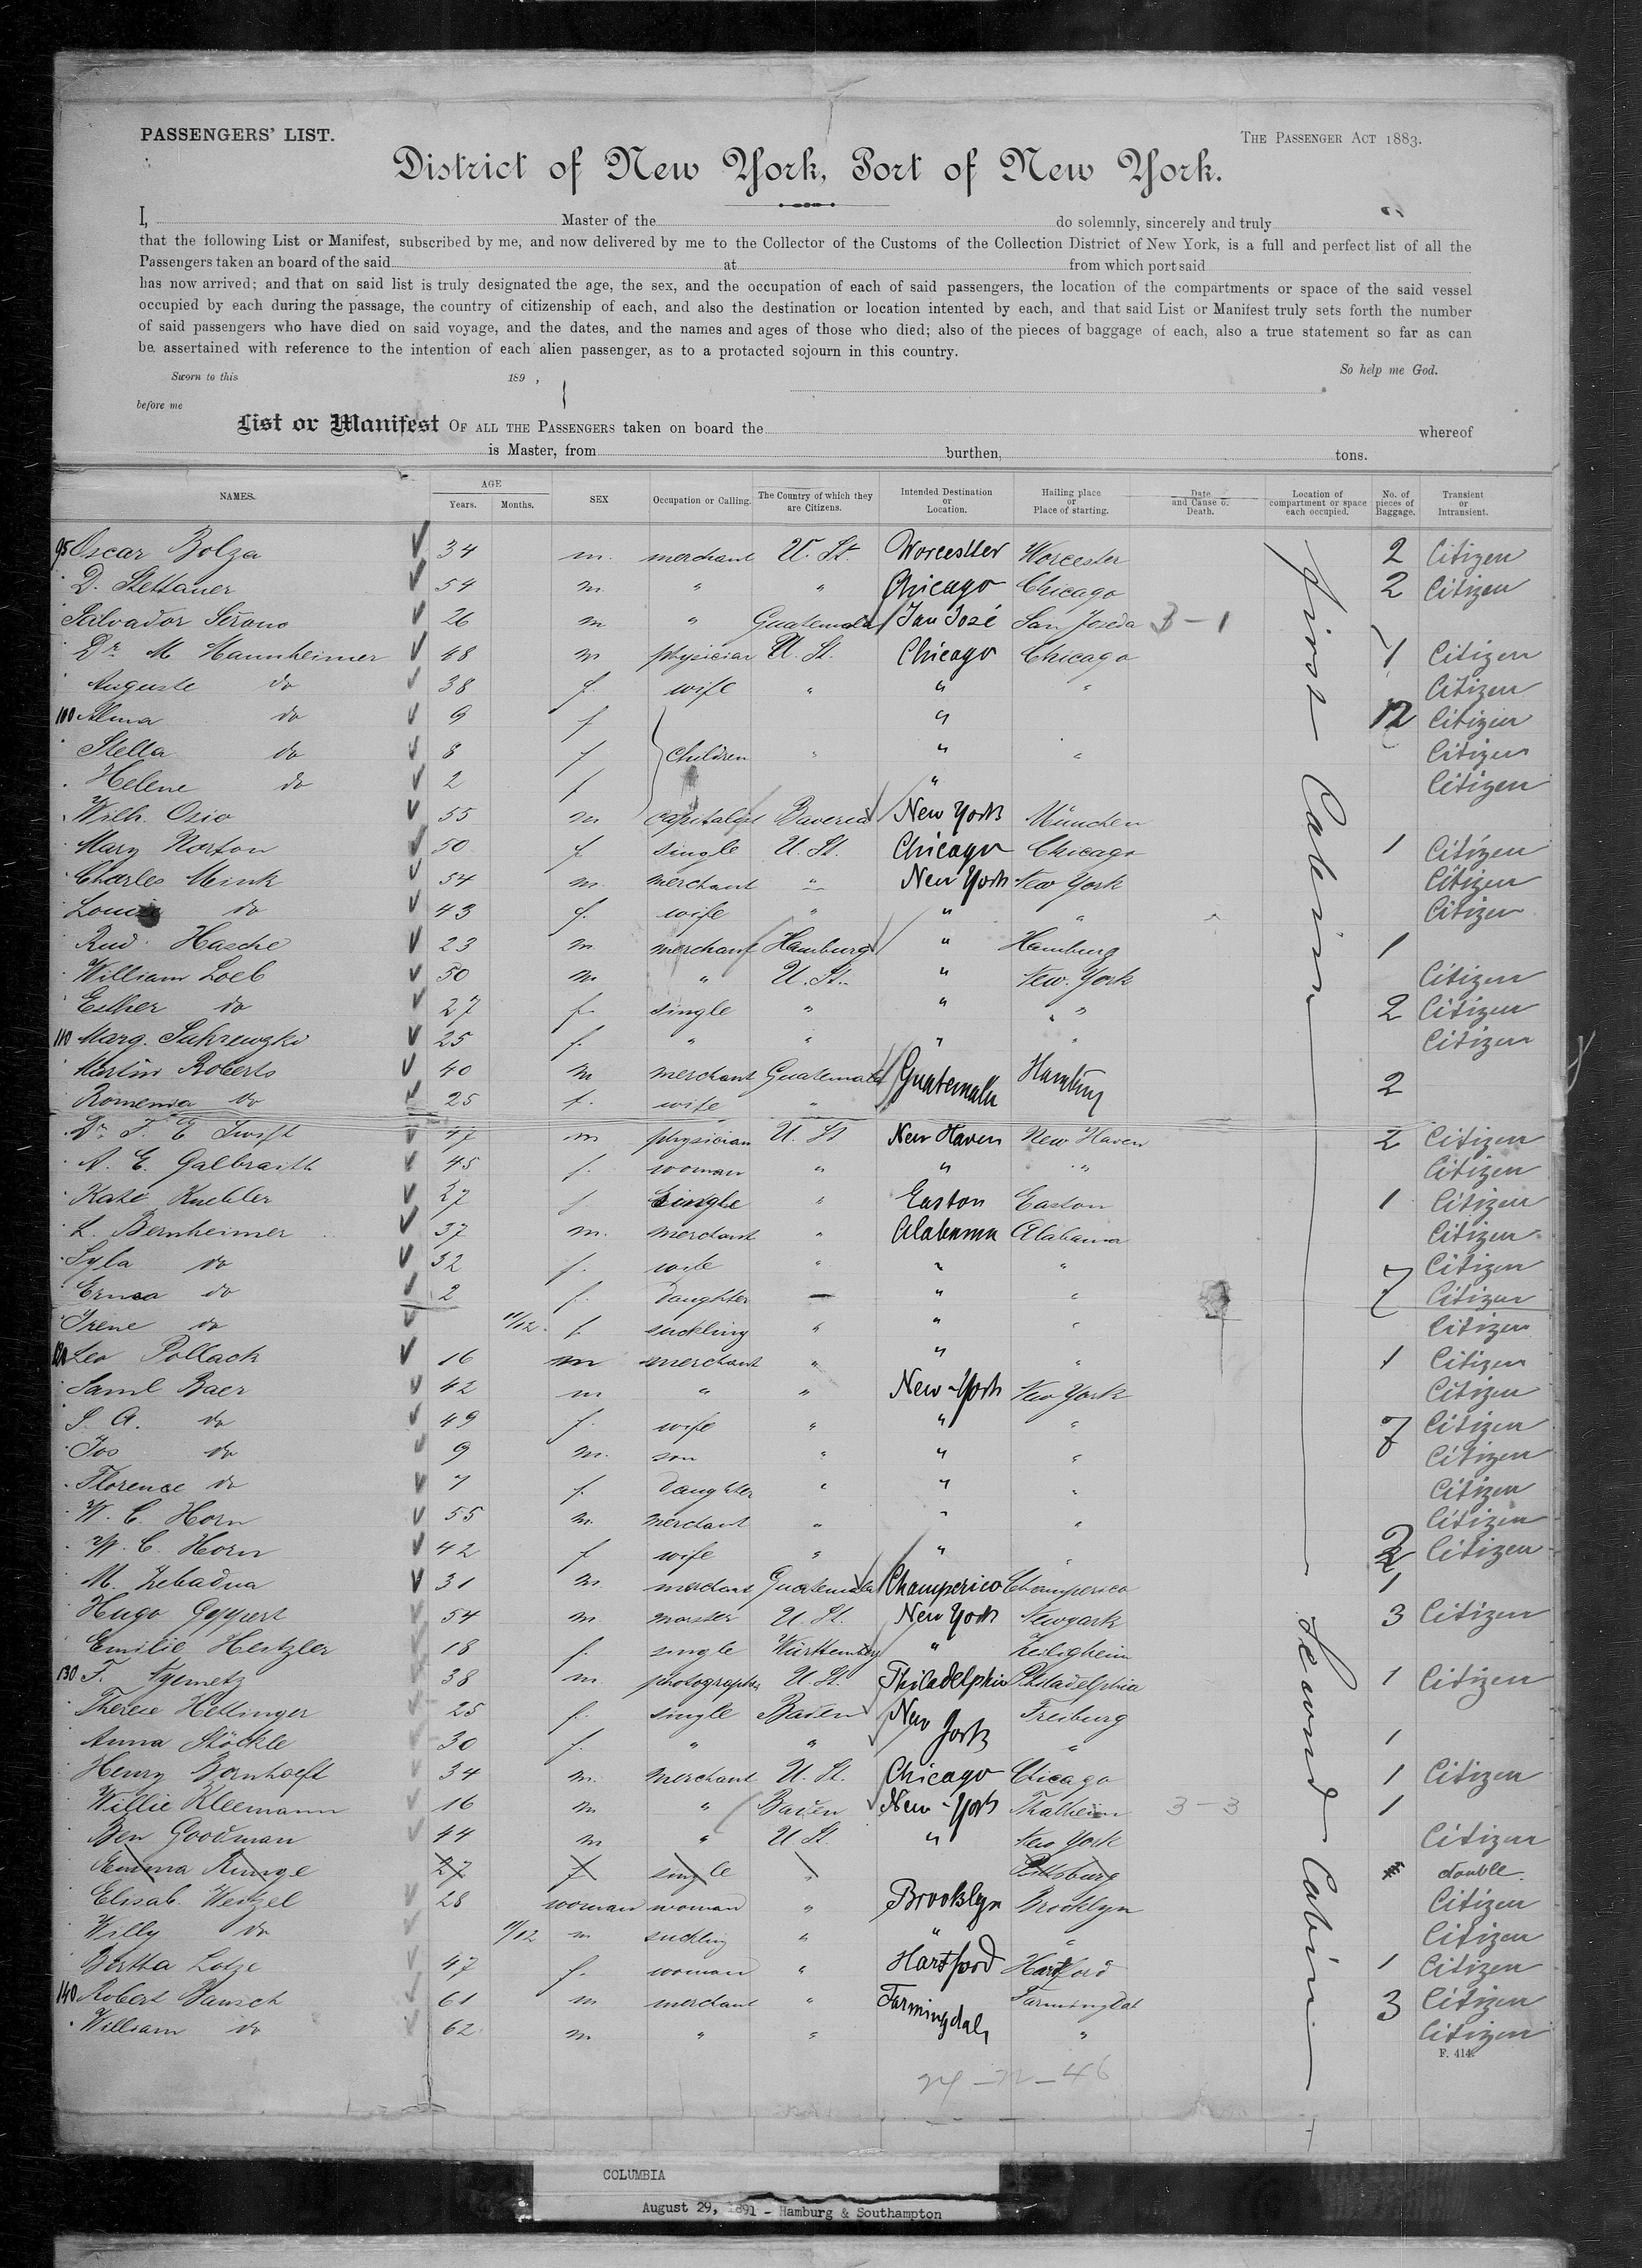 PASSENGERS' LIST.
THE PASSENGER ACT 1883.
District of New York, Port of New York.
I, Master of the do solemnly, sincerely and truly
that the following List or Manifest, subscribed by me, and now delivered by me to the Collector of the Customs of the Collection District of New York, is a full and perfect list of all the
Passengers taken an board of the said at from which port said
has now arrived; and that on said list is truly designated the age, the sex, and the occupation of each of said passengers, the location of the compartments or space of the said vessel
occupied by each during the passage, the country of citizenship of each, and also the destination or location intented by each, and that said List or Manifest truly sets forth the number
of said passengers who have died on said voyage, and the dates, and the names and ages of those who died; also of the pieces of baggage of each, also a true statement so far as can
be assertained with reference to the intention of each alien passenger, as to a protacted sojourn in this country.
Sworn to this 189 , So help me God.
before me
List or Manifest OF ALL THE PASSENGERS taken on board the whereof
is Master, from burthen, tons.
NAMES. AGE Years. Months. SEX Occupation or Calling. The Country of which they are Citizens. Intended Destination or Location. Hailing place or Place of starting. Date and Cause of Death. Location of compartment or space each occupied. No. of pieces of Baggage. Transient or Intransient.
95 Oscar Bolza 34 m. merchant U. St. Worcester Worcester 2 Citizen
D. Stettauer 54 m. " " Chicago Chicago 2 Citizen
Salvador 26 m " Guatemala San José San José 3-1
Dr. M Mannheimer 48 m physician U. St. Chicago Chicago 1 Citizen
Auguste do 38 f. wife " " " Citizen
100 Alma do 9 f " 12 Citizen
Stella do 8 f children " " " Citizen
Helene do 2 f " Citizen
Wilh. Osio 55 m capitalist Baveria New York München
Mary Norton 50 f. single U. St. Chicago Chicago 1 Citizen
Charles Mink 54 m. merchant " New York New York Citizen
Louise do 43 f. wife " " " Citizen
Rud. Hasche 23 m merchant Hamburg " Hamburg 1
William Loeb 50 m " U. St. " New York Citizen
Esther do 27 f. single " " " 2 Citizen
110 Marg. 25 f. " " " " Citizen
Martin Roberts 40 m merchant Guatemala Guatemala Hamburg 2
Romenia do 25 f. wife "
Dr. F. E Swift 47 m physician U. St New Haven New Haven 2 Citizen
A. E. Galbraith 45 f. woman " " " Citizen
Kate Knebler 27 f single " Easton Easton 1 Citizen
L. Bernheimer 37 m. merchant " Alabama Alabama Citizen
Syla do 32 f. wife " " " Citizen
Erna do 2 f. daughter — " " 7 Citizen
Irene do 11/12 f. suckling " " " Citizen
120 Leo Pollack 16 m merchant " " " 1 Citizen
Saml Baer 42 m " " New-York New York Citizen
S. A. do 49 f. wife " " " 7 Citizen
Jos do 9 m. son " " " Citizen
Florence do 7 f. daughter " " " Citizen
W. C. Horn 55 m. merchant " " " Citizen
W. C. Horn 42 f wife " " " 2 Citizen
M. Zebadua 31 m. merchant Guatemala Champerico Champerico 1
Hugo 54 m. U. St. New York Newyork 3 Citizen
Emilie Hertzler 18 f. single Württemberg "
130 F. 38 m photographer U. St. Philadelphia Philadelphia 1 Citizen
Therese Hettinger 25 f. single Baden New York Freiburg
Anna Stöckle 30 f. " " " 1
Henry Bornhoeft 34 m. merchant U. St. Chicago Chicago 1 Citizen
Willie Kleemann 16 m " Baden New-York Thalheim 3-3 1
Ben Goodman 44 m " U St. " New York Citizen
Emma Runge 27 f single " Pittsburg double
Elisab. Weitzel 28 woman woman " Brooklyn Brooklyn Citizen
Willy do 11/12 m suckling " " " Citizen
Bertha Lotze 47 f. woman " Hartford Hartford 1 Citizen
140 Robert Bausch 61 m merchant " Farmingdale Farmingdale 3 Citizen
William do 62 m " " " Citizen
First Cabin
Second Cabin
F. 414.
COLUMBIA
August 29, 1891 - Hamburg & Southampton